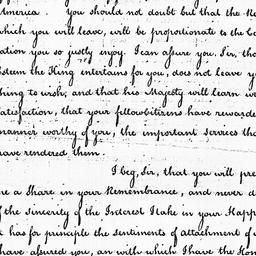 America. You should not doubt but that the Re
which you will leave, will be proportionate to the Co
ation you so justly enjoy. I can assure you, Sir, tha
steem the King entertains for you, does not leave yo
thing to wish, and that his Majesty will learn wi
satisfaction, that your fellow citizens have rewarde
manner worthy of you, the important services tha
have rendered them.
I beg, Sir, that you will pre
me a Share in your Remembrance, and never d
of the sincerity of the Interest I take in your Happ
t has for principle the sentiments of attachment of w
have assured you, an with which I have the Hon